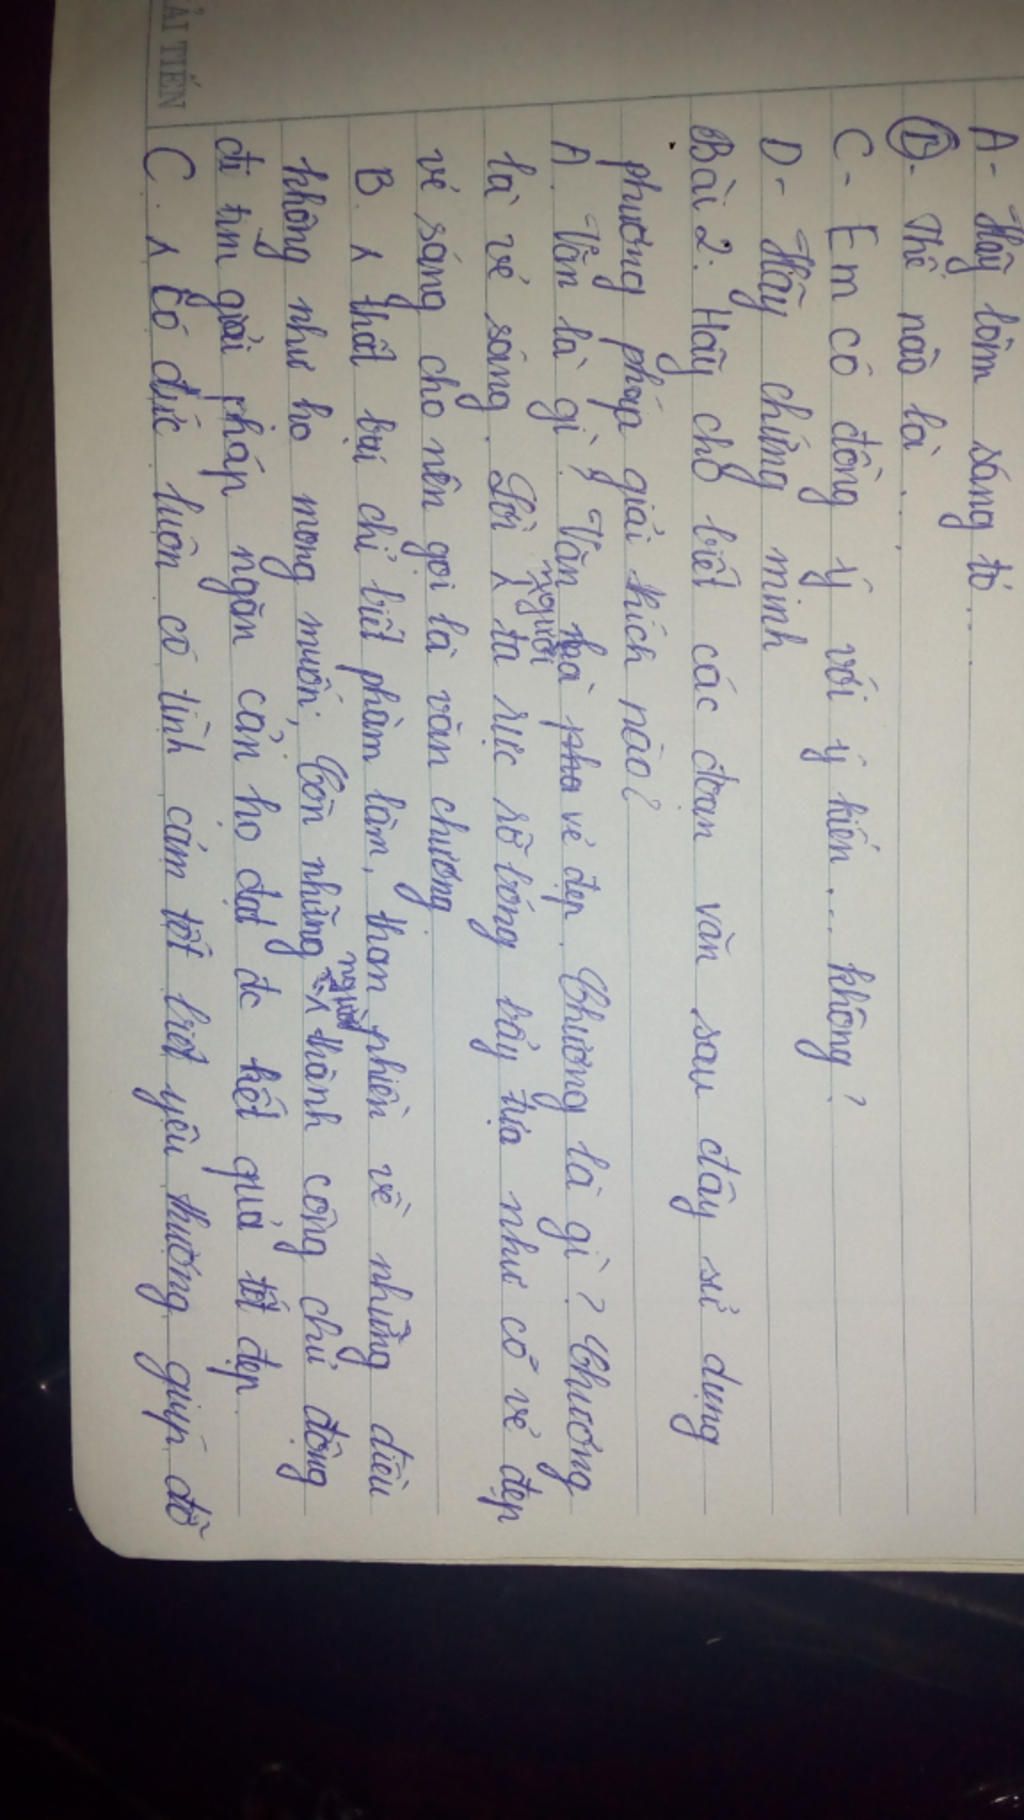 ẢI TIẾN
A- Hãy làm sáng tỏ...
B- Thế nào là...
C- Em có đồng ý với ý kiến... không?
D- Hãy chứng minh
Bài 2: Hãy cho biết các đoạn văn sau đây sử dụng
phương pháp giải thích nào?
A. Văn là gì? Văn là vẻ đẹp. Chương là gì? Chương
là vẻ sáng. Lời
người
ta rực rỡ bóng bẩy tựa như có vẻ đẹp
vẻ sáng cho nên gọi là văn chương
B. ʌ thất bại chỉ biết phàm làm, than phiền về những điều
không như họ mong muốn; Còn những
người
thành công chủ động
đi tìm giải pháp ngăn cản họ đạt đc kết quả tốt đẹp.
C. ʌ Có đức luôn có tình cảm tốt biết yêu thương giúp đỡ